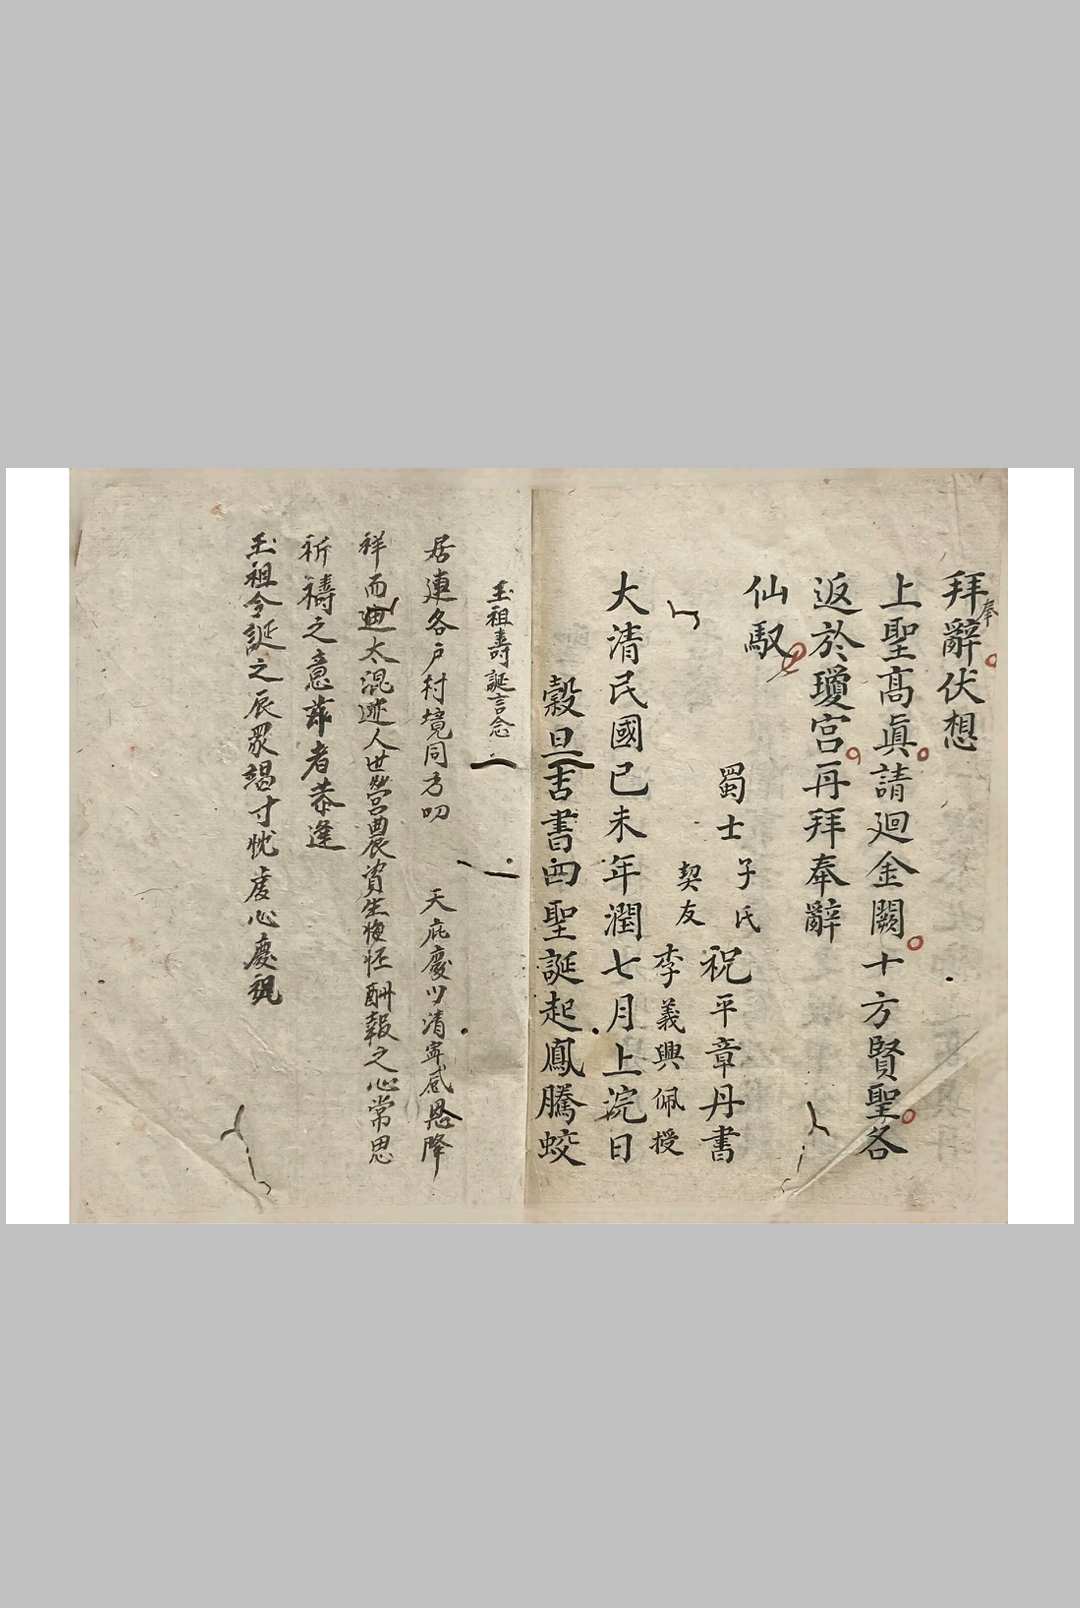 拜奉辭伏想
上聖髙眞請廻金闕十方賢聖各
返於瓊宫再拜奉辭
仙馭
蜀士子氏祝平章丹書
契友李義興佩授
大清民國已未年潤七月上浣日
穀旦吉書四聖誕起鳳騰蛟
玉祖壽誕言念
居連各戸村境同方叨 天庇慶以清寧感恩降
祥而 太混迹人世 農資生 酧報之心常思
祈禱之意茲者恭逢
玉祖令誕之辰眾竭寸忱虔心慶祝